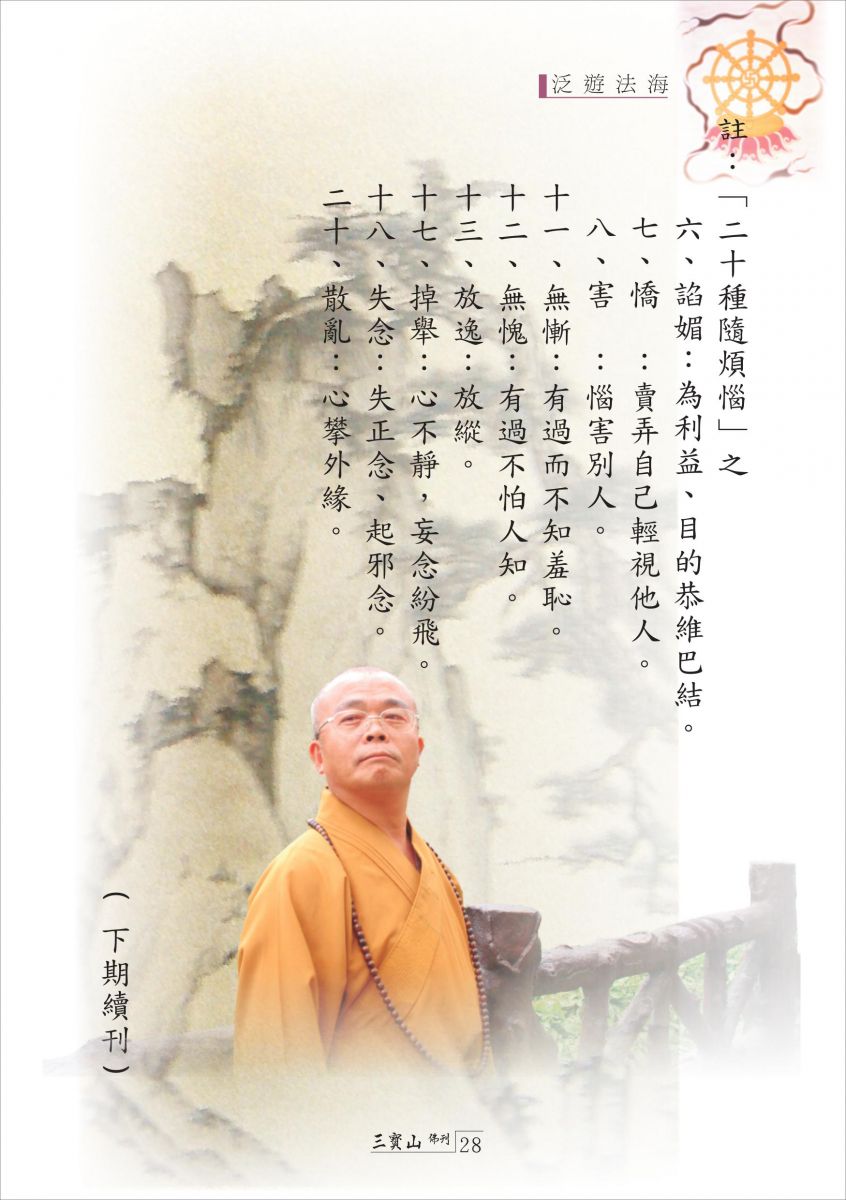 泛遊法海
註：「二十種隨煩惱」之
六、諂媚：為利益、目的恭維巴結。
七、憍　：賣弄自己輕視他人。
八、害　：惱害別人。
十一、無慚：有過而不知羞恥。
十二、無愧：有過不怕人知。
十三、放逸：放縱。
十七、掉舉：心不靜，妄念紛飛。
十八、失念：失正念、起邪念。
二十、散亂：心攀外緣。
（下期續刊）
三寶山 佛刊 28